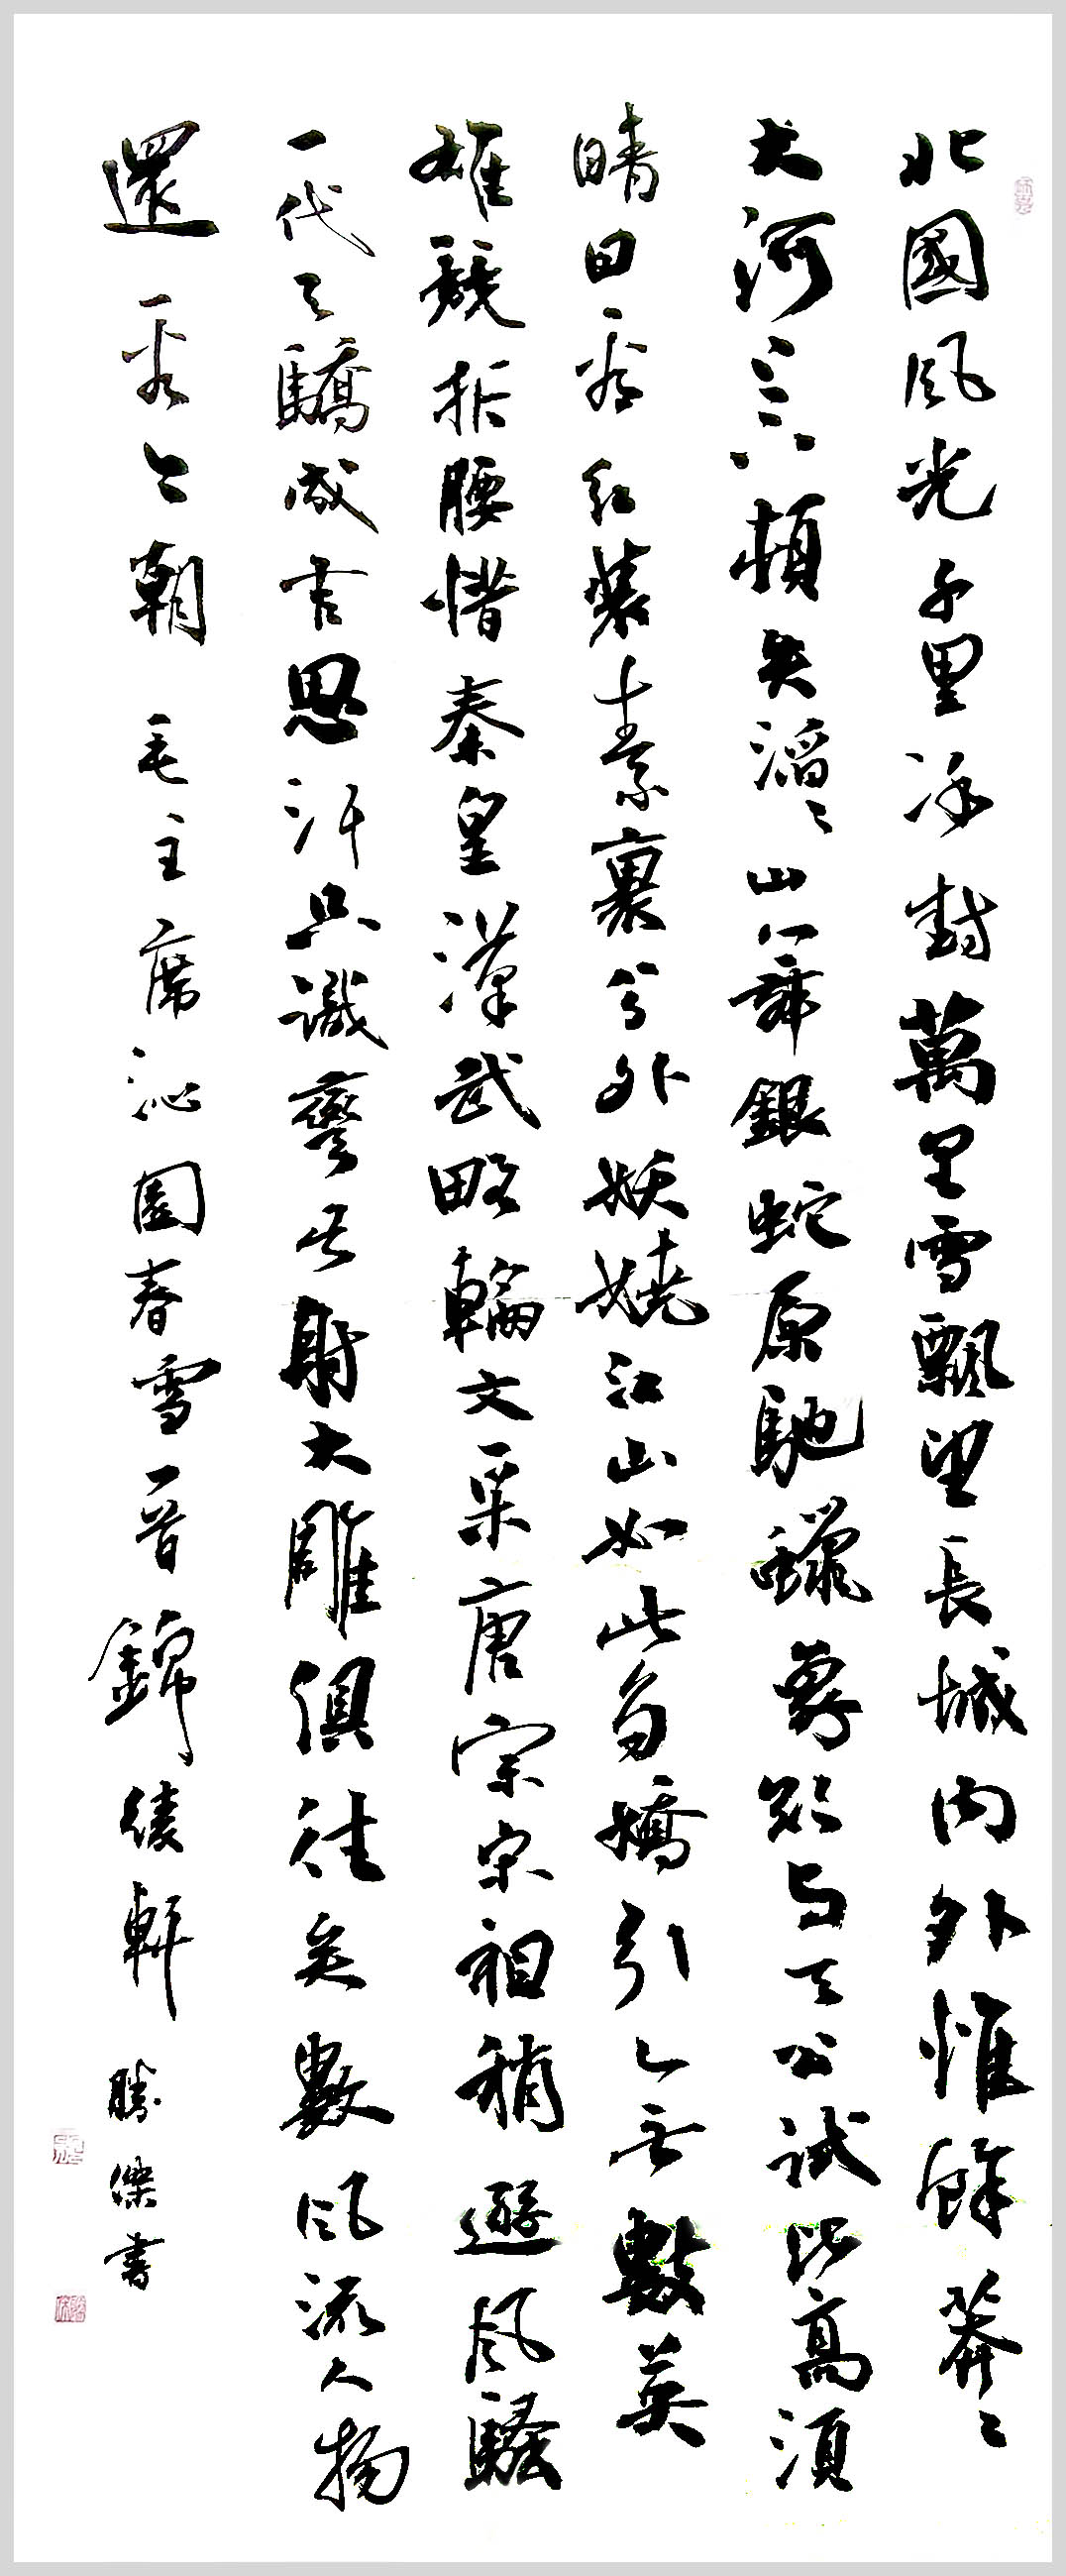 北國風光千里冰封萬里雪飄望長城內外惟餘莽〻
大河上下頓失滔〻山舞銀蛇原馳蠟象欲与天公試比高須
晴日看紅裝素裹分外妖嬈江山如此多嬌引无數英
雄競折腰惜秦皇漢武略輸文采唐宗宋祖稍遜風騷
一代天驕成吉思汗只識彎弓射大雕俱往矣數風流人物
還看今朝 毛主席沁園春雪一首 錦綾軒 勝傑書